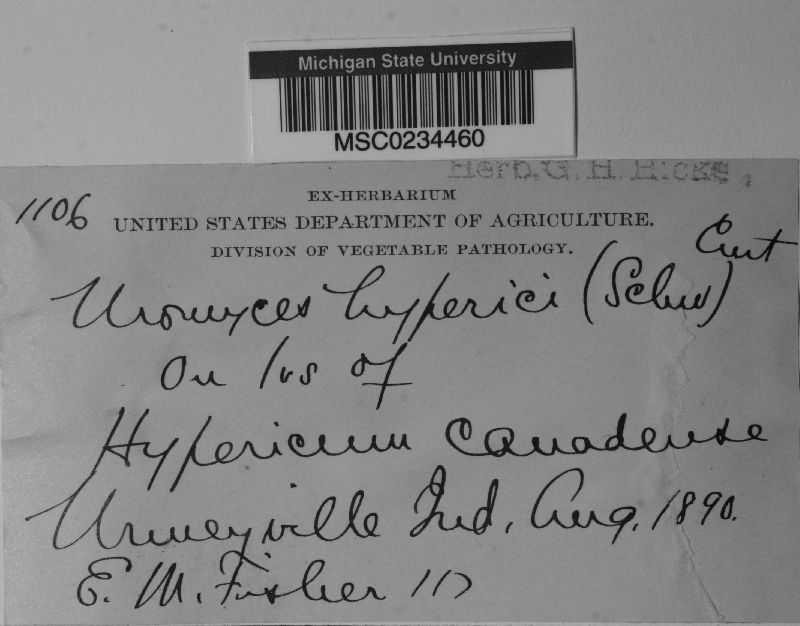 Michigan State University
MSC0234460
Herb. G. H. Hicks,
1106
EX-HERBARIUM
UNITED STATES DEPARTMENT OF AGRICULTURE.
DIVISION OF VEGETABLE PATHOLOGY.
Uromyces hyperici (Schw) Curt
On lvs of
Hypericum canadense
Urmeyville Ind, Aug. 1890.
E. M. Fisher 117